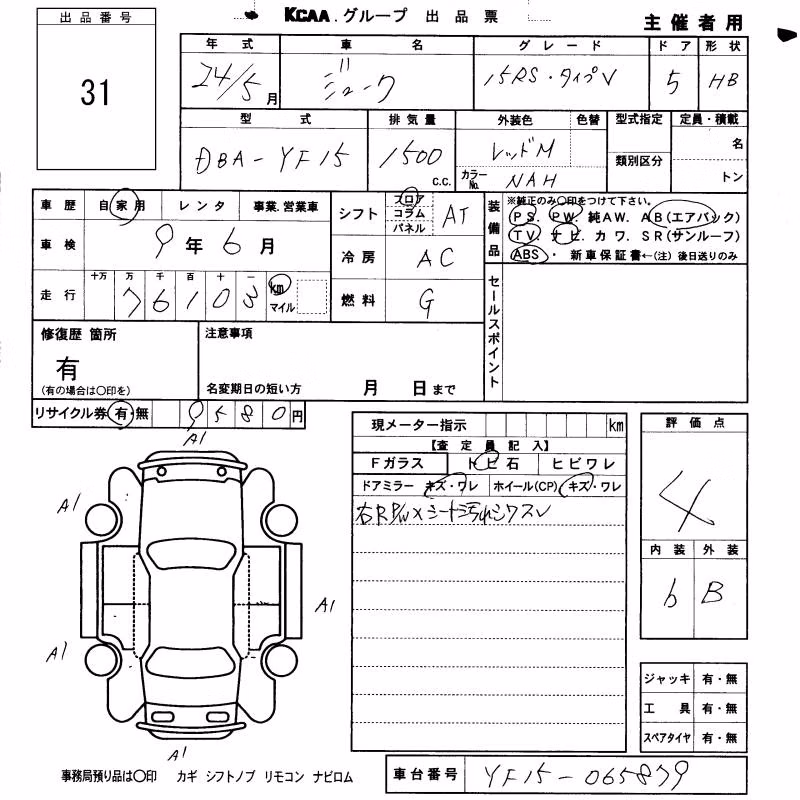 KCAA.グループ 出品票
主催者用
出品番号
31
年式 車名 グレード ドア 形状
24/5月 ジューク 15RS・タイプV 5 HB
型式 排気量 外装色 色替 型式指定 定員・積載
DBA-YF15 1500 c.c. レッドM 類別区分 名
カラーNo. NAH トン
車歴 自家用 レンタ 事業.営業車
シフト フロア コラム パネル AT
装備品 ※純正のみ○印をつけて下さい。
PS. PW. 純AW. AB(エアバック)
TV. ナビ. カワ. SR(サンルーフ)
ABS・ 新車保証書←(注)後日送りのみ
車検 9年6月
冷房 AC
走行 十万 万 千 百 十 一 km マイル
76103
燃料 G
セールスポイント
修復歴 箇所 注意事項
有
(有の場合は○印を) 名変期日の短い方 月 日まで
リサイクル券 有・無 9580円
現メーター指示 km
【査定員記入】
Fガラス トビ石 ヒビワレ
ドアミラー キズ・ワレ ホイール(CP) キズ・ワレ
右R P/W×シート汚れ
評価点
4
内装 外装
b B
A1
A1
A1
A1
A1
ジャッキ 有・無
工具 有・無
スペアタイヤ 有・無
事務局預り品は○印 カギ シフトノブ リモコン ナビロム
車台番号 YF15-065879